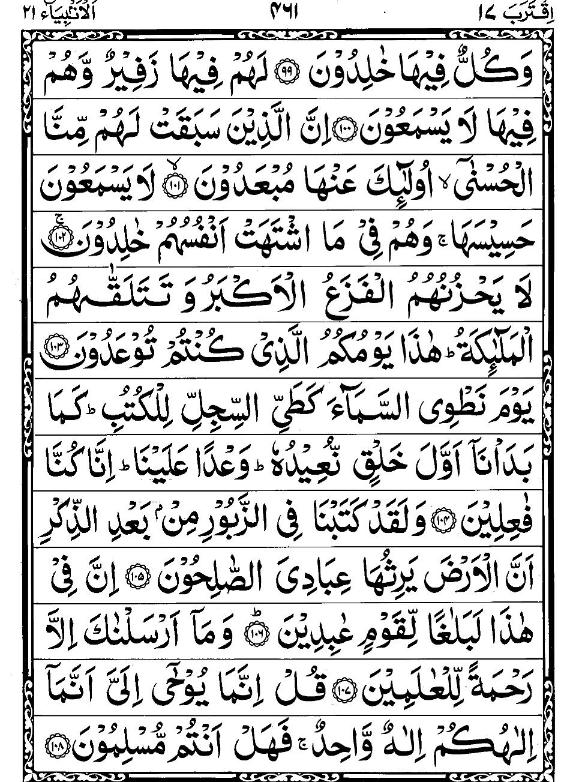 اِقْتَرَبَ ١٧ ٤٦١ اَلْاَنْۢبِيَآء ٢١
وَكُلٌّ فِيْهَا خٰلِدُوْنَ ﴿٩٩﴾ لَهُمْ فِيْهَا زَفِيْرٌ وَّهُمْ
فِيْهَا لَا يَسْمَعُوْنَ ﴿١٠٠﴾ اِنَّ الَّذِيْنَ سَبَقَتْ لَهُمْ مِّنَّا
الْحُسْنٰۤى ۙ اُولٰٓئِكَ عَنْهَا مُبْعَدُوْنَ ﴿١٠١﴾ ۙ لَا يَسْمَعُوْنَ
حَسِيْسَهَا ۚ وَهُمْ فِيْ مَا اشْتَهَتْ اَنْفُسُهُمْ خٰلِدُوْنَ ﴿١٠٢﴾ ۚ
لَا يَحْزُنُهُمُ الْفَزَعُ الْاَكْبَرُ وَ تَتَلَقّٰىهُمُ
الْمَلٰٓئِكَةُ ؕ هٰذَا يَوْمُكُمُ الَّذِيْ كُنْتُمْ تُوْعَدُوْنَ ﴿١٠٣﴾
يَوْمَ نَطْوِى السَّمَآءَ كَطَيِّ السِّجِلِّ لِلْكُتُبِ ؕ كَمَا
بَدَاْنَاۤ اَوَّلَ خَلْقٍ نُّعِيْدُهٗ ؕ وَعْدًا عَلَيْنَا ؕ اِنَّا كُنَّا
فٰعِلِيْنَ ﴿١٠٤﴾ وَلَقَدْ كَتَبْنَا فِي الزَّبُوْرِ مِنْۢ بَعْدِ الذِّكْرِ
اَنَّ الْاَرْضَ يَرِثُهَا عِبَادِيَ الصّٰلِحُوْنَ ﴿١٠٥﴾ اِنَّ فِيْ
هٰذَا لَبَلٰغًا لِّقَوْمٍ عٰبِدِيْنَ ﴿١٠٦﴾ ؕ وَ مَاۤ اَرْسَلْنٰكَ اِلَّا
رَحْمَةً لِّلْعٰلَمِيْنَ ﴿١٠٧﴾ قُلْ اِنَّمَا يُوْحٰۤى اِلَيَّ اَنَّمَاۤ
اِلٰهُكُمْ اِلٰهٌ وَّاحِدٌ ۚ فَهَلْ اَنْتُمْ مُّسْلِمُوْنَ ﴿١٠٨﴾